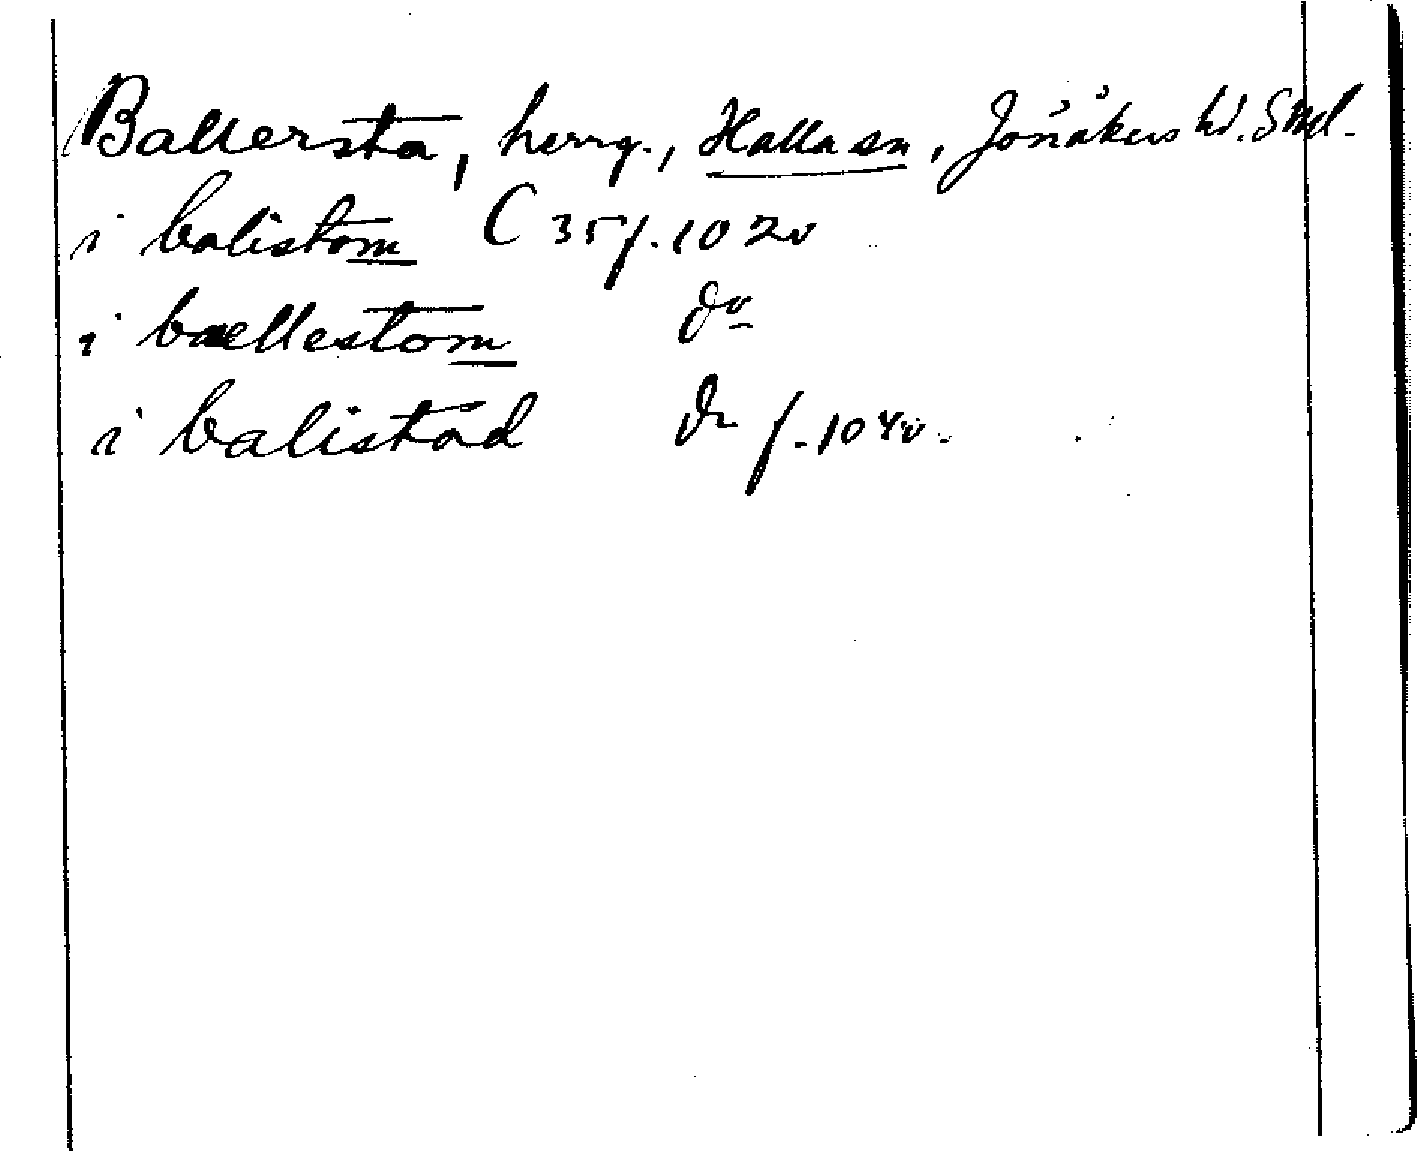 Ballersta, herrg., Halla sn, Jönåkers hd. Sml.
i balistom C 35 f. 102v
i baellestom do
i balistad do f. 104v.